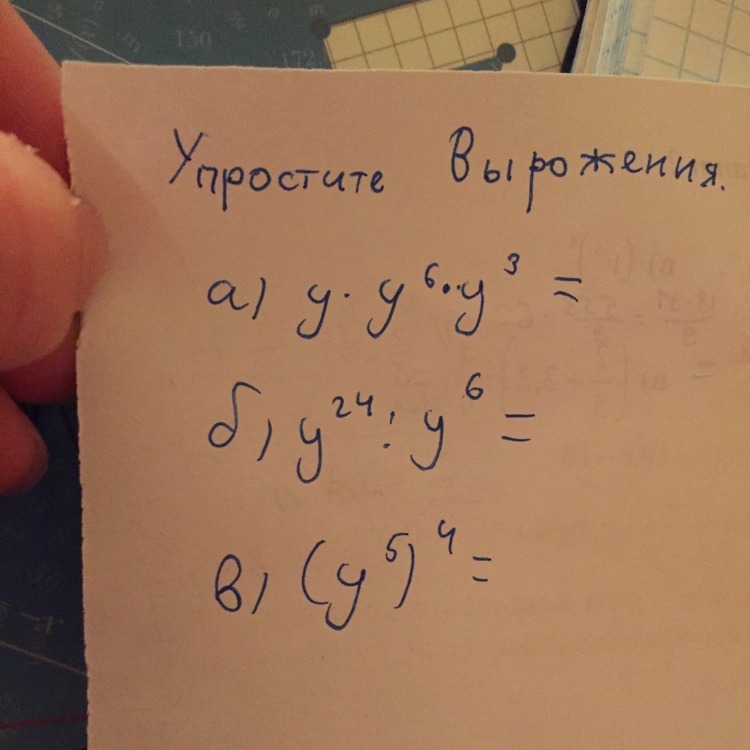 Упростите Вырожения.
а) y · y⁶ · y³ =
б) y²⁴ : y⁶ =
в) (y⁵)⁴ =
150
172